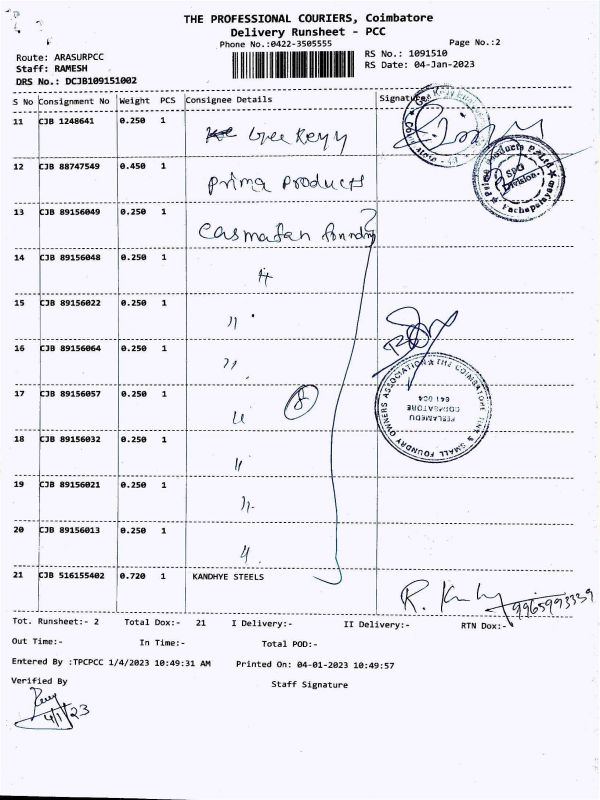 THE PROFESSIONAL COURIERS, Coimbatore
Delivery Runsheet - PCC
Phone No.:0422-3505555
Page No.:2
Route: ARASURPCC
Staff: RAMESH
DRS No.: DCJB109151002
RS No.: 1091510
RS Date: 04-Jan-2023
S No Consignment No Weight PCS Consignee Details Signature
11 CJB 1248641 0.250 1
12 CJB 88747549 0.450 1 Prima Products
13 CJB 89156049 0.250 1
14 CJB 89156048 0.250 1 "
15 CJB 89156022 0.250 1 "
16 CJB 89156064 0.250 1 "
17 CJB 89156057 0.250 1 "
8
18 CJB 89156032 0.250 1 "
19 CJB 89156021 0.250 1 "
20 CJB 89156013 0.250 1 "
21 CJB 516155402 0.720 1 KANDHYE STEELS
Prima Products P. Ltd
SPG
Division.
Pachapalayam
THE COIMBATORE TINY & SMALL FOUNDRY OWNERS ASSOCIATION
PEELAMEDU
COIMBATORE
641 004
9965993339
Tot. Runsheet:- 2 Total Dox:- 21 I Delivery:- II Delivery:- RTN Dox:-
Out Time:- In Time:- Total POD:-
Entered By :TPCPCC 1/4/2023 10:49:31 AM Printed On: 04-01-2023 10:49:57
Verified By Staff Signature
4/1/23